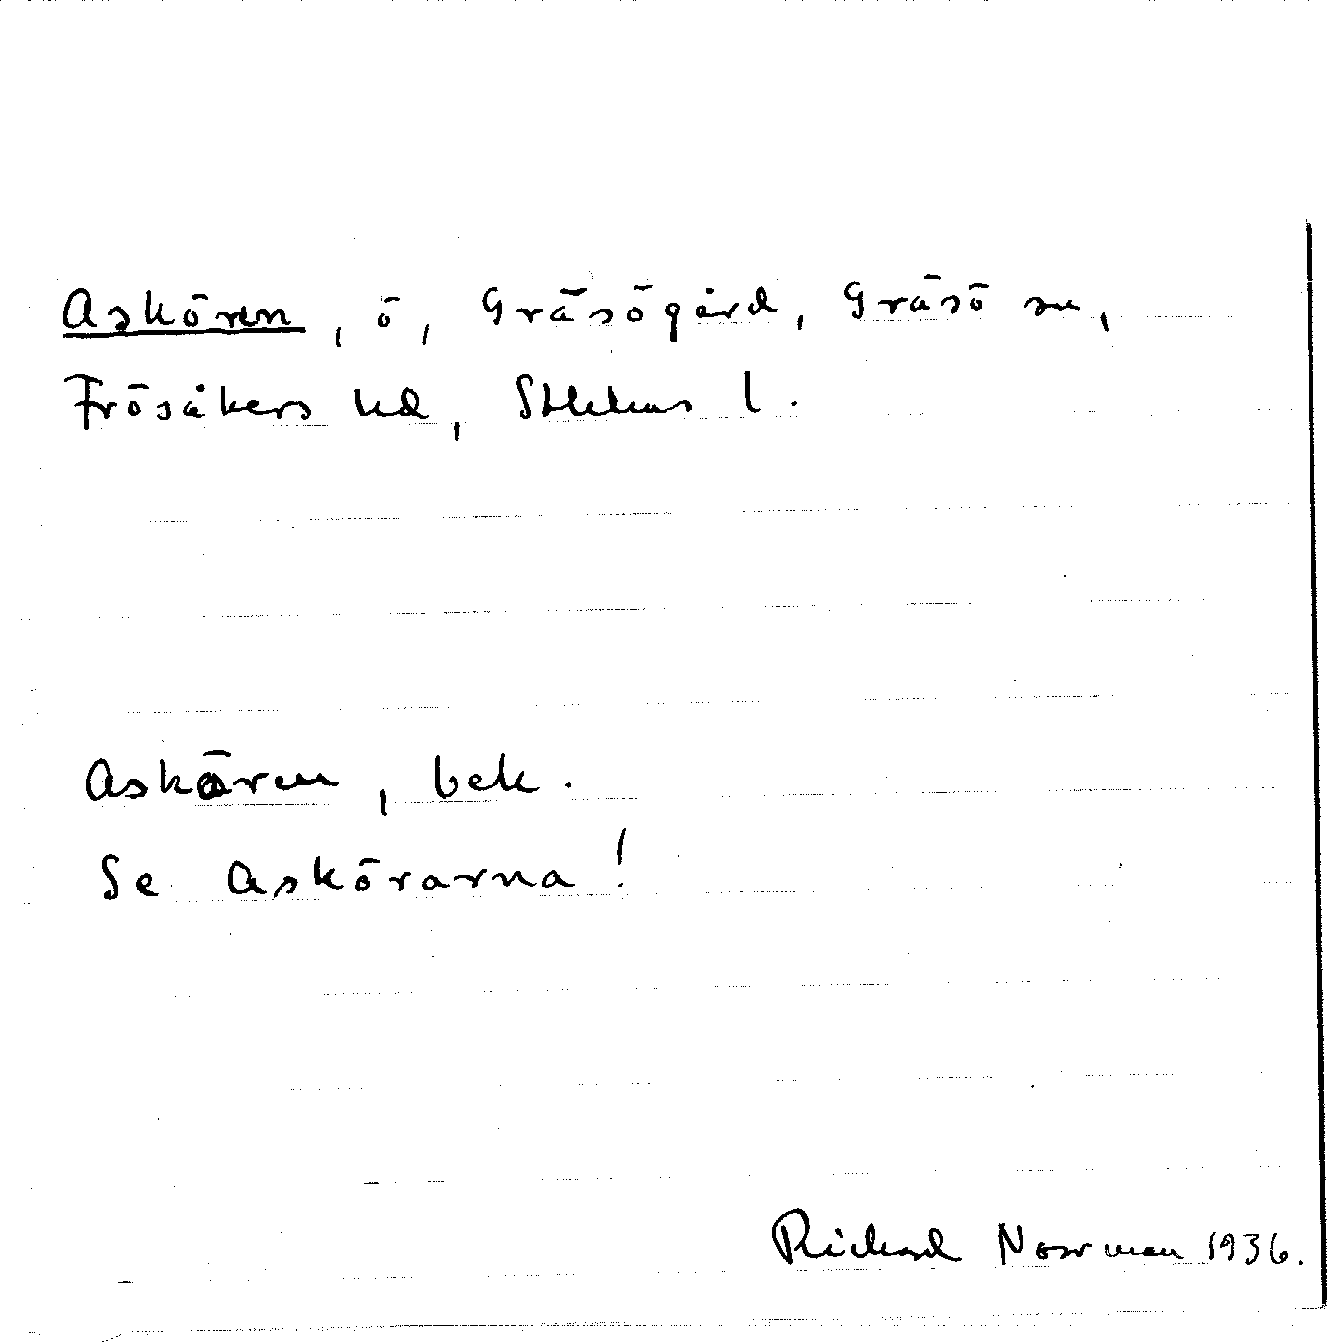 Askören, ö, Gräsögård, Gräsö sn,
Frösåkers hd, Sthlms l.
Askören, bek.
Se Askörarna!
Rickard Norrman 1936.